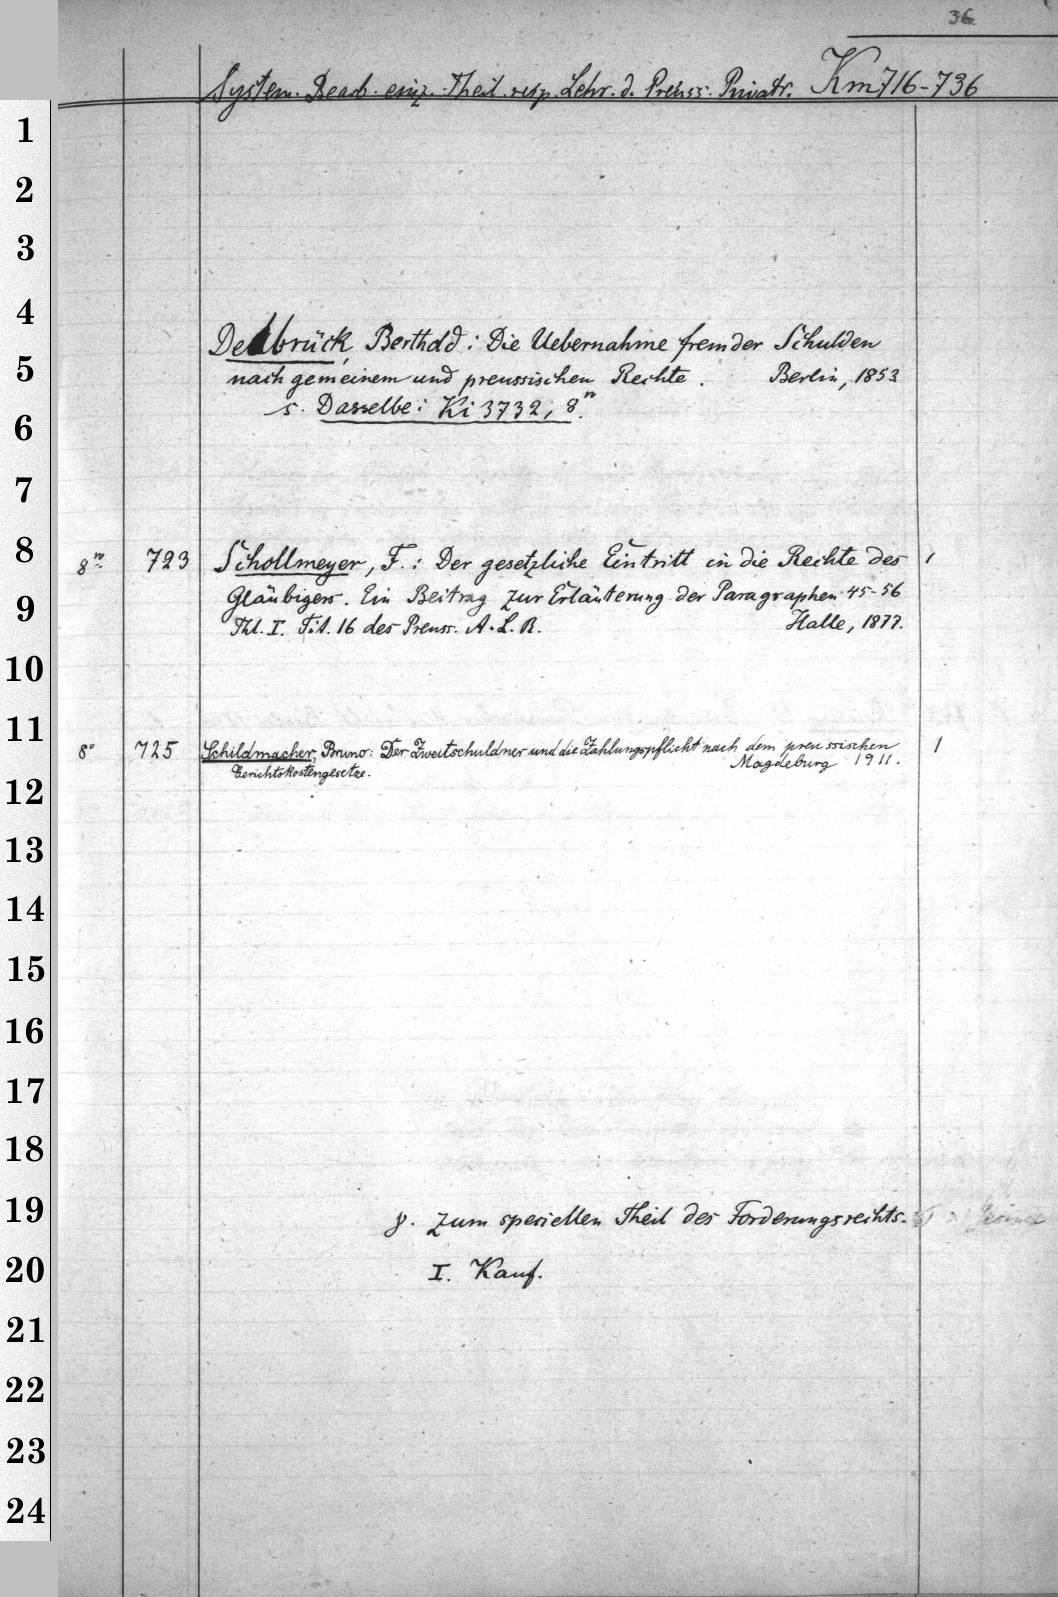 36
System. Bearb. einz. Theil. resp. Lehr. d. Preuss. Privatr. Km 716-736
1
2
3
4
Delbrück, Berthold: Die Uebernahme fremder Schulden
5
nach gemeinem und preussischen Rechte. Berlin, 1853
s. Dasselbe: Ki 3732, 8n.
6
7
8
8n 723 Schollmeyer, F.: Der gesetzliche Eintritt in die Rechte des 1
9
Gläubigers. Ein Beitrag zur Erläuterung der Paragraphen 45-56
Thl. I. Tit. 16 des Preuss. A. L. R. Halle, 1877.
10
11
8° 725 Schildmacher, Bruno: Der Zweitschuldner und die Zahlungspflicht nach dem preussischen 1
Gerichtskostengesetze. Magdeburg 1911.
12
13
14
15
16
17
18
19
γ. Zum speciellen Theil des Forderungsrechts.
20
I. Kauf.
21
22
23
24